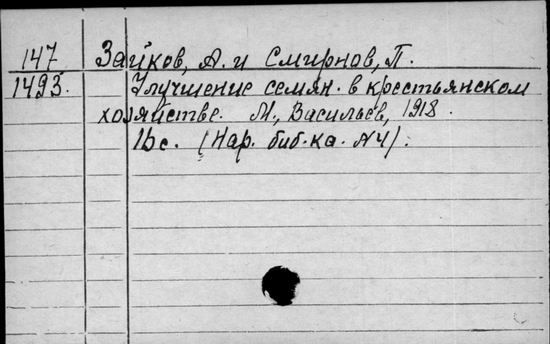 147 Зайков, А. и Смирнов, П.
1493. Улучшение семян. в крестьянском
хозяйстве. М., Васильев, 1918.
16с. (Нар. биб-ка. №4).